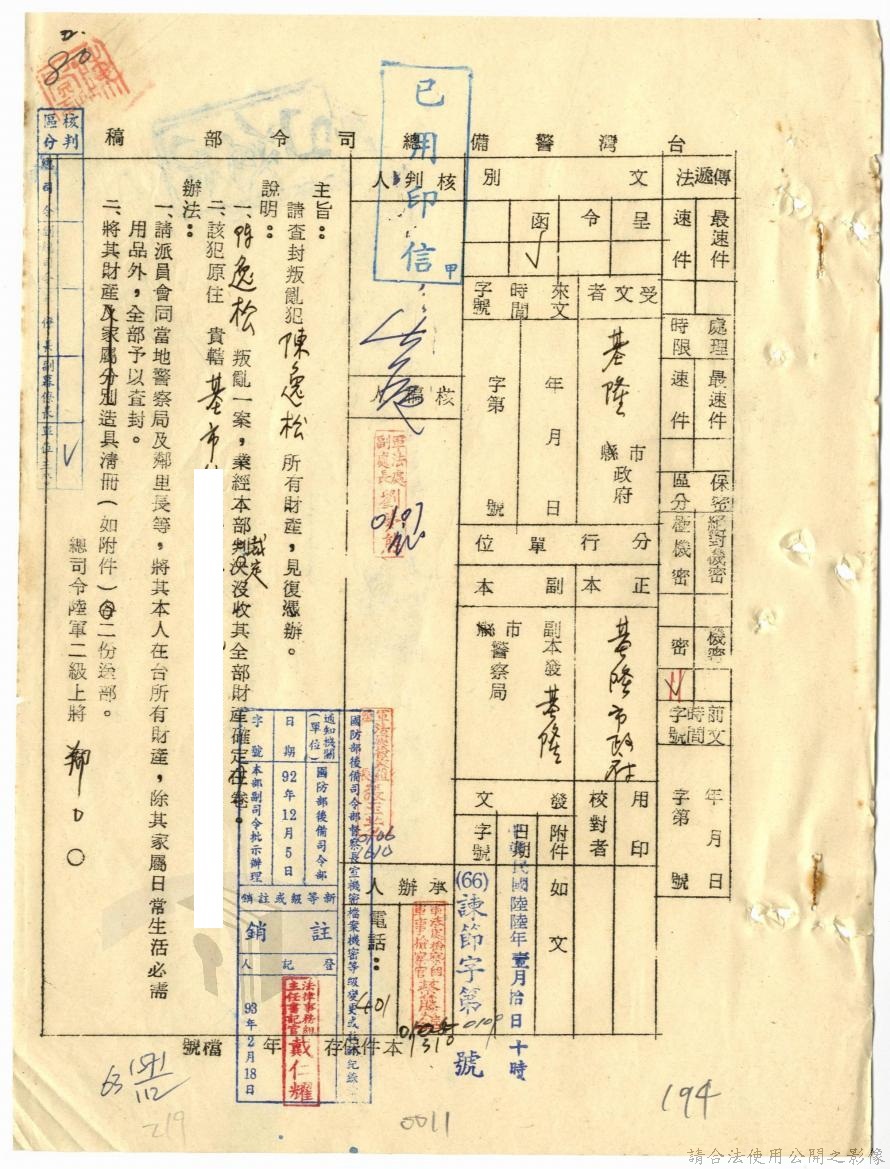 台灣警備總司令部稿
傳遞法
最速件
速件
處理時限
最速件
速件
保密區分
絕對機密
極機密
機密
密
前文
時間
字號
年月日
字第 號
文別
呈
令
函
受文者
基隆市縣政府
來文
時間
字號
年月日
字第 號
分行單位
正本
副本
基隆市政府
副本發基隆
市縣警察局
用印
校對者
發文
附件
如文
日期
中華民國陸陸年壹月拾日十時
字號
(66)諫節字第 號
0109
核判人
核稿人
軍法處副處長
0107
承辦人
電話：
401
本件保存 年
檔號
已用印信
甲
主旨：
請查封叛亂犯陳逸松所有財產，見復憑辦。
說明：
一、陳逸松叛亂一案，業經本部判決裁定沒收其全部財產確定在卷。
二、該犯原住 貴轄基市
辦法：
一、請派員會同當地警察局及鄰里長等，將其本人在台所有財產，除其家屬日常生活必需
用品外，全部予以查封。
二、將其財產及家屬分別造具清冊（如附件）各二份送部。
總司令陸軍二級上將 鄭〇〇
核判區分
國防部後備司令部督察長室機密檔案機密等級變更或註銷紀錄
通知機關
(單位)
國防部後備司令部
日期
92年12月5日
字號
本部副司令批示辦理
新等級或註銷
註銷
登記人
法律事務組
主任書記官
戴仁耀
93年2月18日
63 1571/112
219
0011
194
請合法使用公開之影像